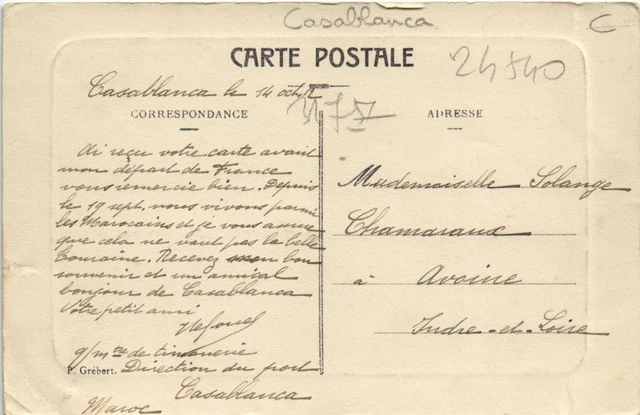 Casablanca
CARTE POSTALE
24840
Casablanca le 14 oct
CORRESPONDANCE
ADRESSE
Ai reçu votre carte avant
mon départ de France
vous remercie bien. Depuis
le 19 sept, vous vivons parmi
les Marocains et je vous assure
que cela ne vaut pas la belle
Touraine. Recevez mon bon
souvenir et un amical
bonjour de Casablanca
Votre petit ami
q/m tre de timonerie
Direction du port
Casablanca
Maroc
P. Grébert.
Mademoiselle Solange
Chamaraux
à Avoine
Indre-et-Loire